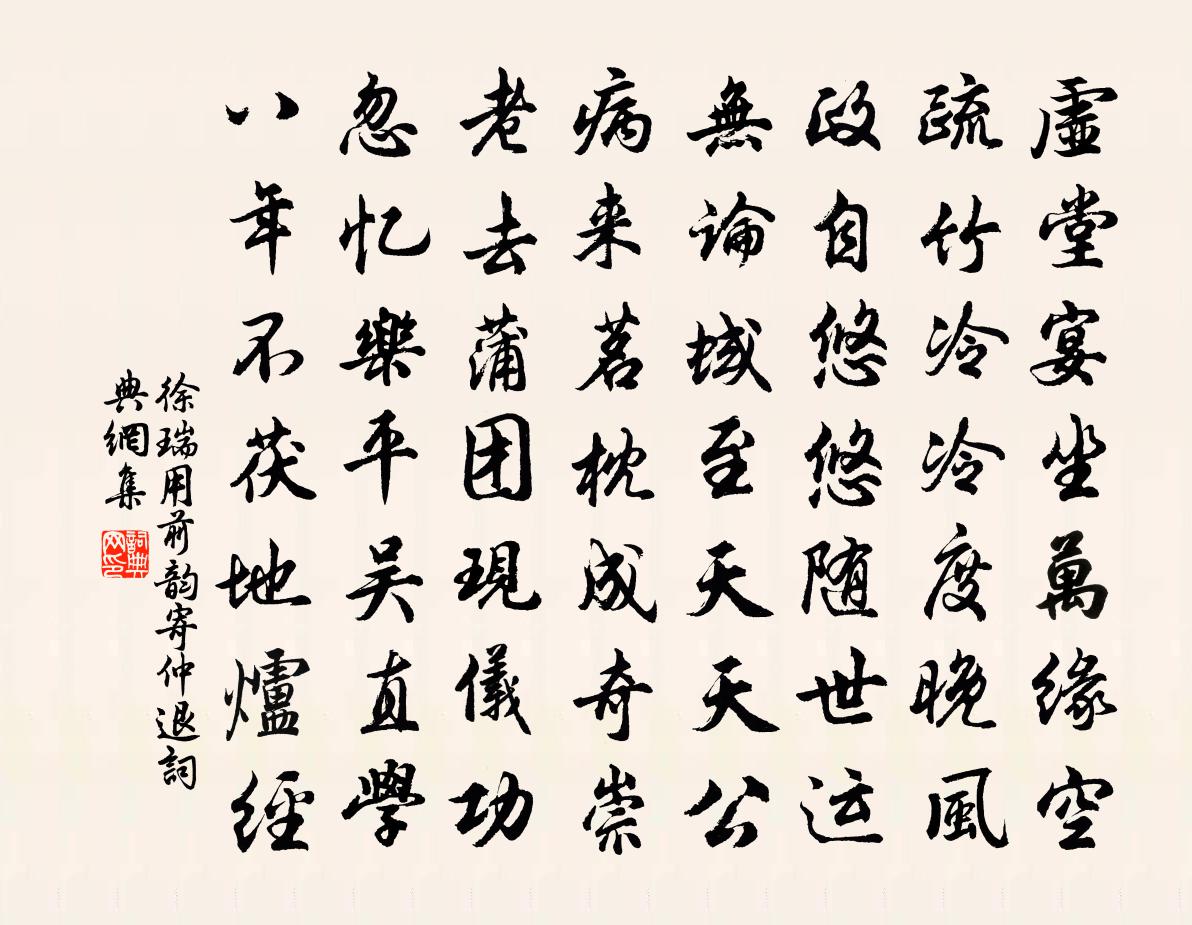 虛堂宴坐萬緣空
疏竹冷冷度晚風
政自悠悠随世运
無論域至天天公
病来茗枕成奇崇
老去蒲团現儀功
忽忆樂平吴直學
八年不茯地爐經
徐瑞用前韵寄仲退詞
典網集
詞典
网印